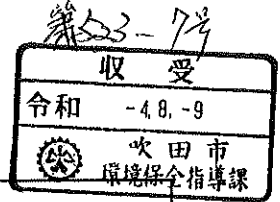 第523-7号
収受
令和 -4.8.-9
吹田市
環境保全指導課